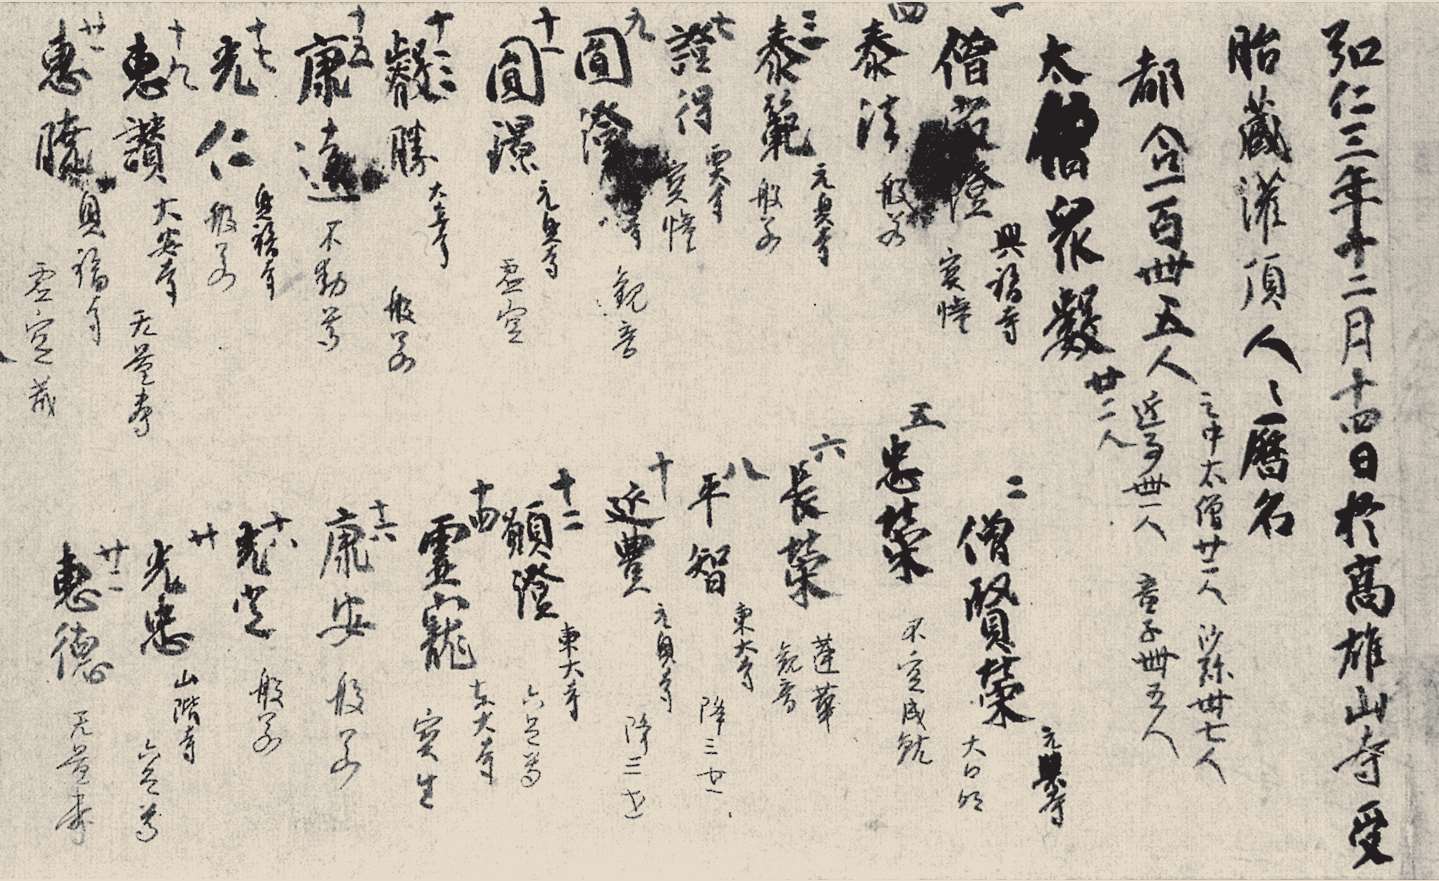 弘仁三年十二月十四日於高雄山寺受
胎藏灌頂人々曆名
都合一百卌五人
之中太僧廿二人 沙弥卌七人
近事卌一人 童子卌五人
太僧衆數 廿二人
一 僧最澄 興福寺 寶幢
二 僧賢榮 元興寺 大日
四 泰法 般若
五 忠榮 不空成就
三 泰範 元興寺 般若
六 長榮 蓮華 觀音
七 證得 寶幢
八 平智 東大寺 降三世
九 圓澄 寺 觀音
十 延豊 元興寺 降三世
十一 圓璟 元興寺 虛空
十二 願澄 東大寺 六足尊
十三 叡勝 大安寺 般若
十四 靈寵 東大寺 寶生
十五 康遠 不動尊
十六 康安 般若
十七 光仁 興福寺 般若
十八 光定 般若
十九 惠讃 大安寺 无量壽
廿 光忠 山階寺 六足尊
廿一 惠曉 興福寺 虛空藏
廿二 惠德 无量壽